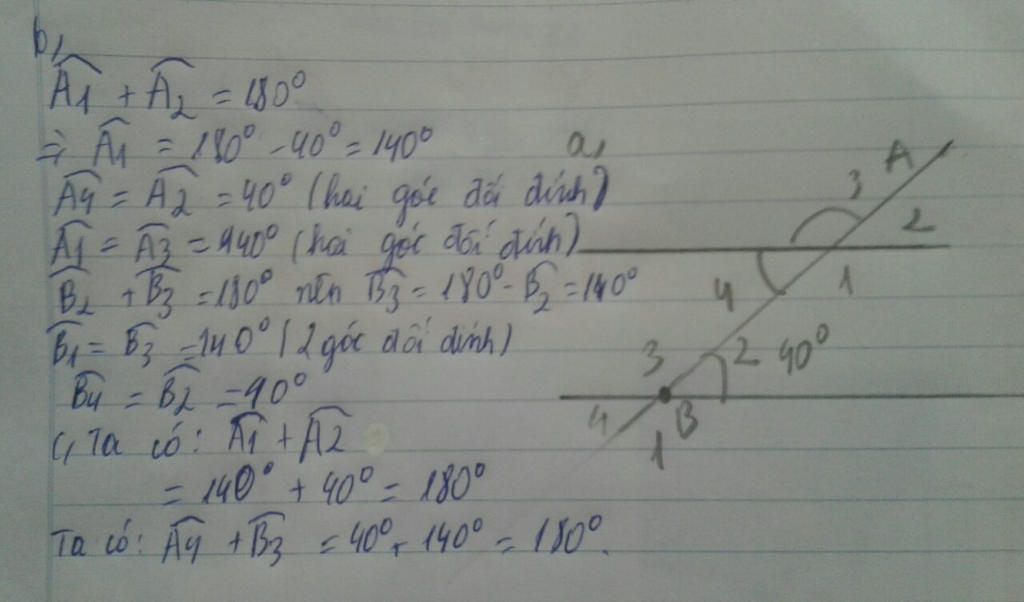 b,
Â1 + Â2 = 180°
=> Â1 = 180° - 40° = 140°
Â4 = Â2 = 40° (hai góc đối đỉnh)
Â1 = Â3 = 140° (hai góc đối đỉnh)
B̂2 + B̂3 = 180° nên B̂3 = 180° - B̂2 = 140°
B̂1 = B̂3 = 140° (2 góc đối đỉnh)
B̂4 = B̂2 = 40°
c, Ta có: Â1 + Â2
= 140° + 40° = 180°
Ta có: Â4 + B̂3 = 40° + 140° = 180°.
a,
A
3
2
4
1
3
2 40°
4
B
1